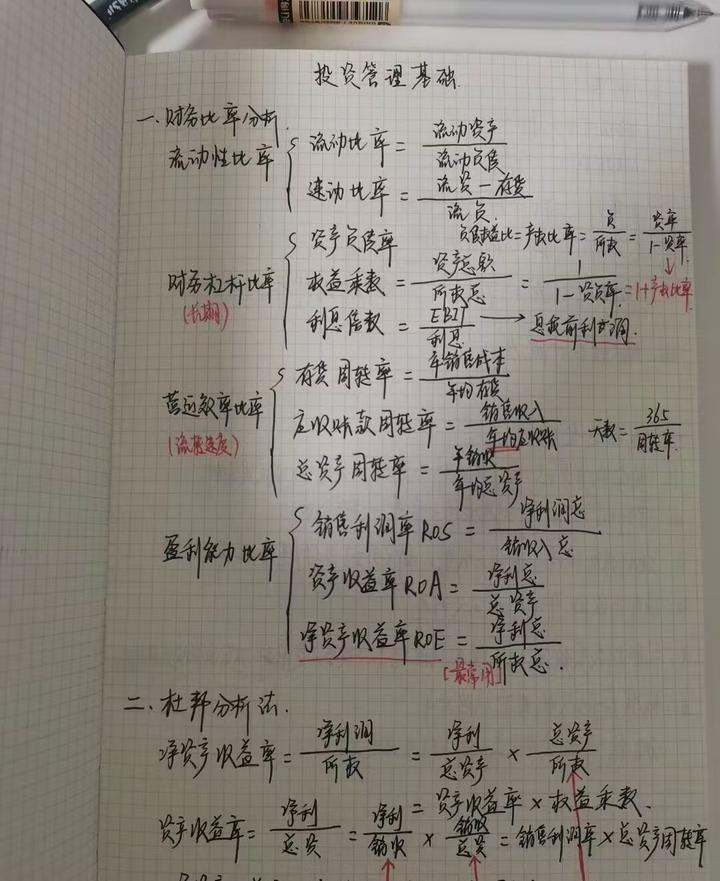 投资管理基础
一、财务比率分析
流动性比率
流动比率 = 流动资产 / 流动负债
速动比率 = 流资 - 存货 / 流负
财务杠杆比率
(长期)
资产负债率
负债权益比 = 产权比率 = 负 / 所权 = 资率 / 1-资率
权益乘数 = 资产总额 / 所权总 = 1 / 1-资负率 = 1+产权比率
利息倍数 = EBIT / 利息 → 息税前利润.
营运效率比率
(流转速度)
存货周转率 = 年销售成本 / 年均存货
应收账款周转率 = 销售收入 / 年均应收账
天数 = 365 / 周转率
总资产周转率 = 年销收 / 年均总资产
盈利能力比率
销售利润率ROS = 净利润总 / 销收入总
资产收益率ROA = 净利总 / 总资产
净资产收益率ROE = 净利总 / 所权总.
[最常用]
二、杜邦分析法.
净资产收益率 = 净利润 / 所权 = 净利 / 总资产 × 总资产 / 所权
= 资产收益率 × 权益乘数.
资产收益率 = 净利 / 总资 = 净利 / 销收 × 销收 / 总资 = 销售利润率 × 总资产周转率